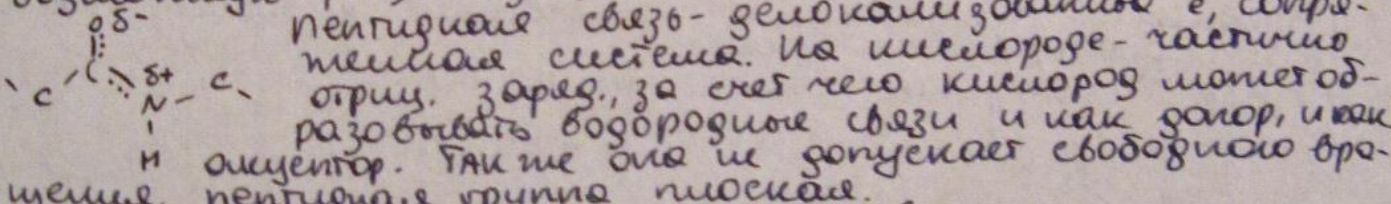 Oδ-
пептидная связь - делокализованные e, сопря-
женная система. На кислороде - частично
C C δ+ C
отриц. заряд., за счет чего кислород может об-
N
разовывать водородные связи и как донор, и как
H акцептор. Так же она не допускает свободного вра-
щения, пептидная группа плоская.